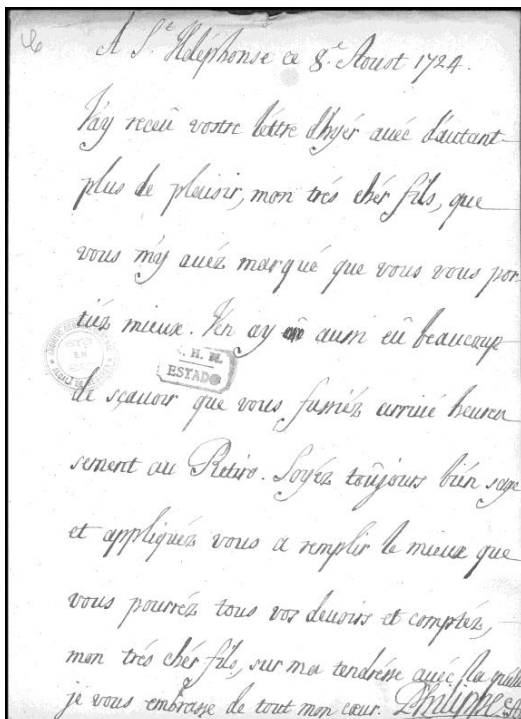 A St. Ildéphonse ce 8.e Aoust 1724.
J'ay receû vostre léttre d'hyér auéc d'autant
plus de plaisir, mon trés chér fils, que
vous m'y auéz marqué que vous vous por-
tiéz mieux. J'en ay aussi eû beaucoup
de sçauoir que vous fussiéz arriué heureu
sement au Retiro. Soyéz toûjours bién sage
et appliquéz vous a remplir le mieux que
vous pourréz tous vos deuoirs et comptéz,
mon trés chér fils, sur ma tendrésse auéc la quélle
je vous embrasse de tout mon cœur. Philippe
A. H. N.
ESTADO